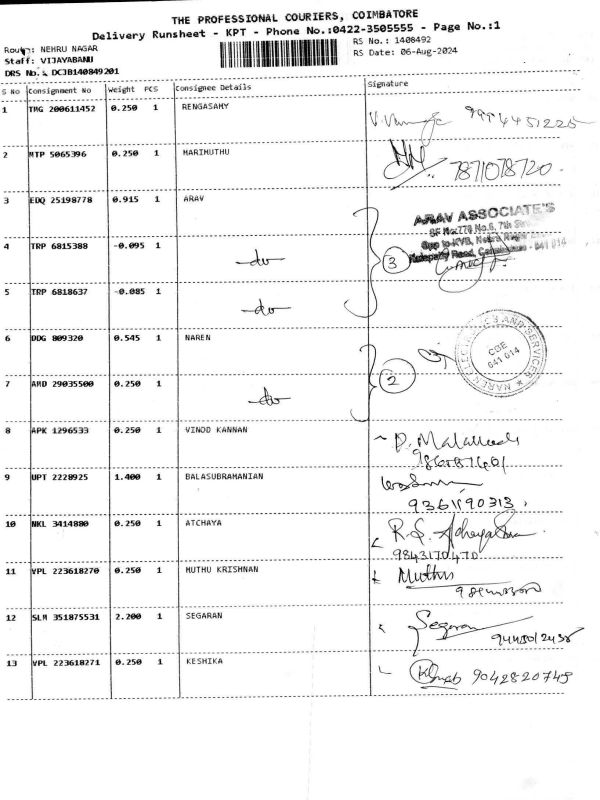 THE PROFESSIONAL COURIERS, COIMBATORE
Delivery Runsheet - KPT - Phone No.:0422-3505555 - Page No.:1
Route: NEHRU NAGAR
RS No.: 1408492
Staff: VIJAYABANU
RS Date: 06-Aug-2024
DRS No.: DCJB140849201
S No Consignment No Weight PCS Consignee Details Signature
1 TMG 200611452 0.250 1 RENGASAMY
2 MTP 5065396 0.250 1 MARIMUTHU 7871078720.
3 EDQ 25198778 0.915 1 ARAV
ARAV ASSOCIATE'S
SF No:778 No.6, 7th
Opp to KVB, Nehru Nagar
Kalapatty Road, Coimbatore - 641 014
4 TRP 6815388 -0.095 1 -do- 3
5 TRP 6818637 -0.085 1 -do-
6 DDG 809320 0.545 1 NAREN
CBE
641 014
7 AMD 29035500 0.250 1 -do- 2
8 APK 1296533 0.250 1 VINOD KANNAN
9 UPT 2228925 1.400 1 BALASUBRAMANIAN
9361190313.
10 NKL 3414880 0.250 1 ATCHAYA
9843170470
11 VPL 223618270 0.250 1 MUTHU KRISHNAN Muthu
12 SLM 351875531 2.200 1 SEGARAN Segaran
13 VPL 223618271 0.250 1 KESHIKA 9042820749